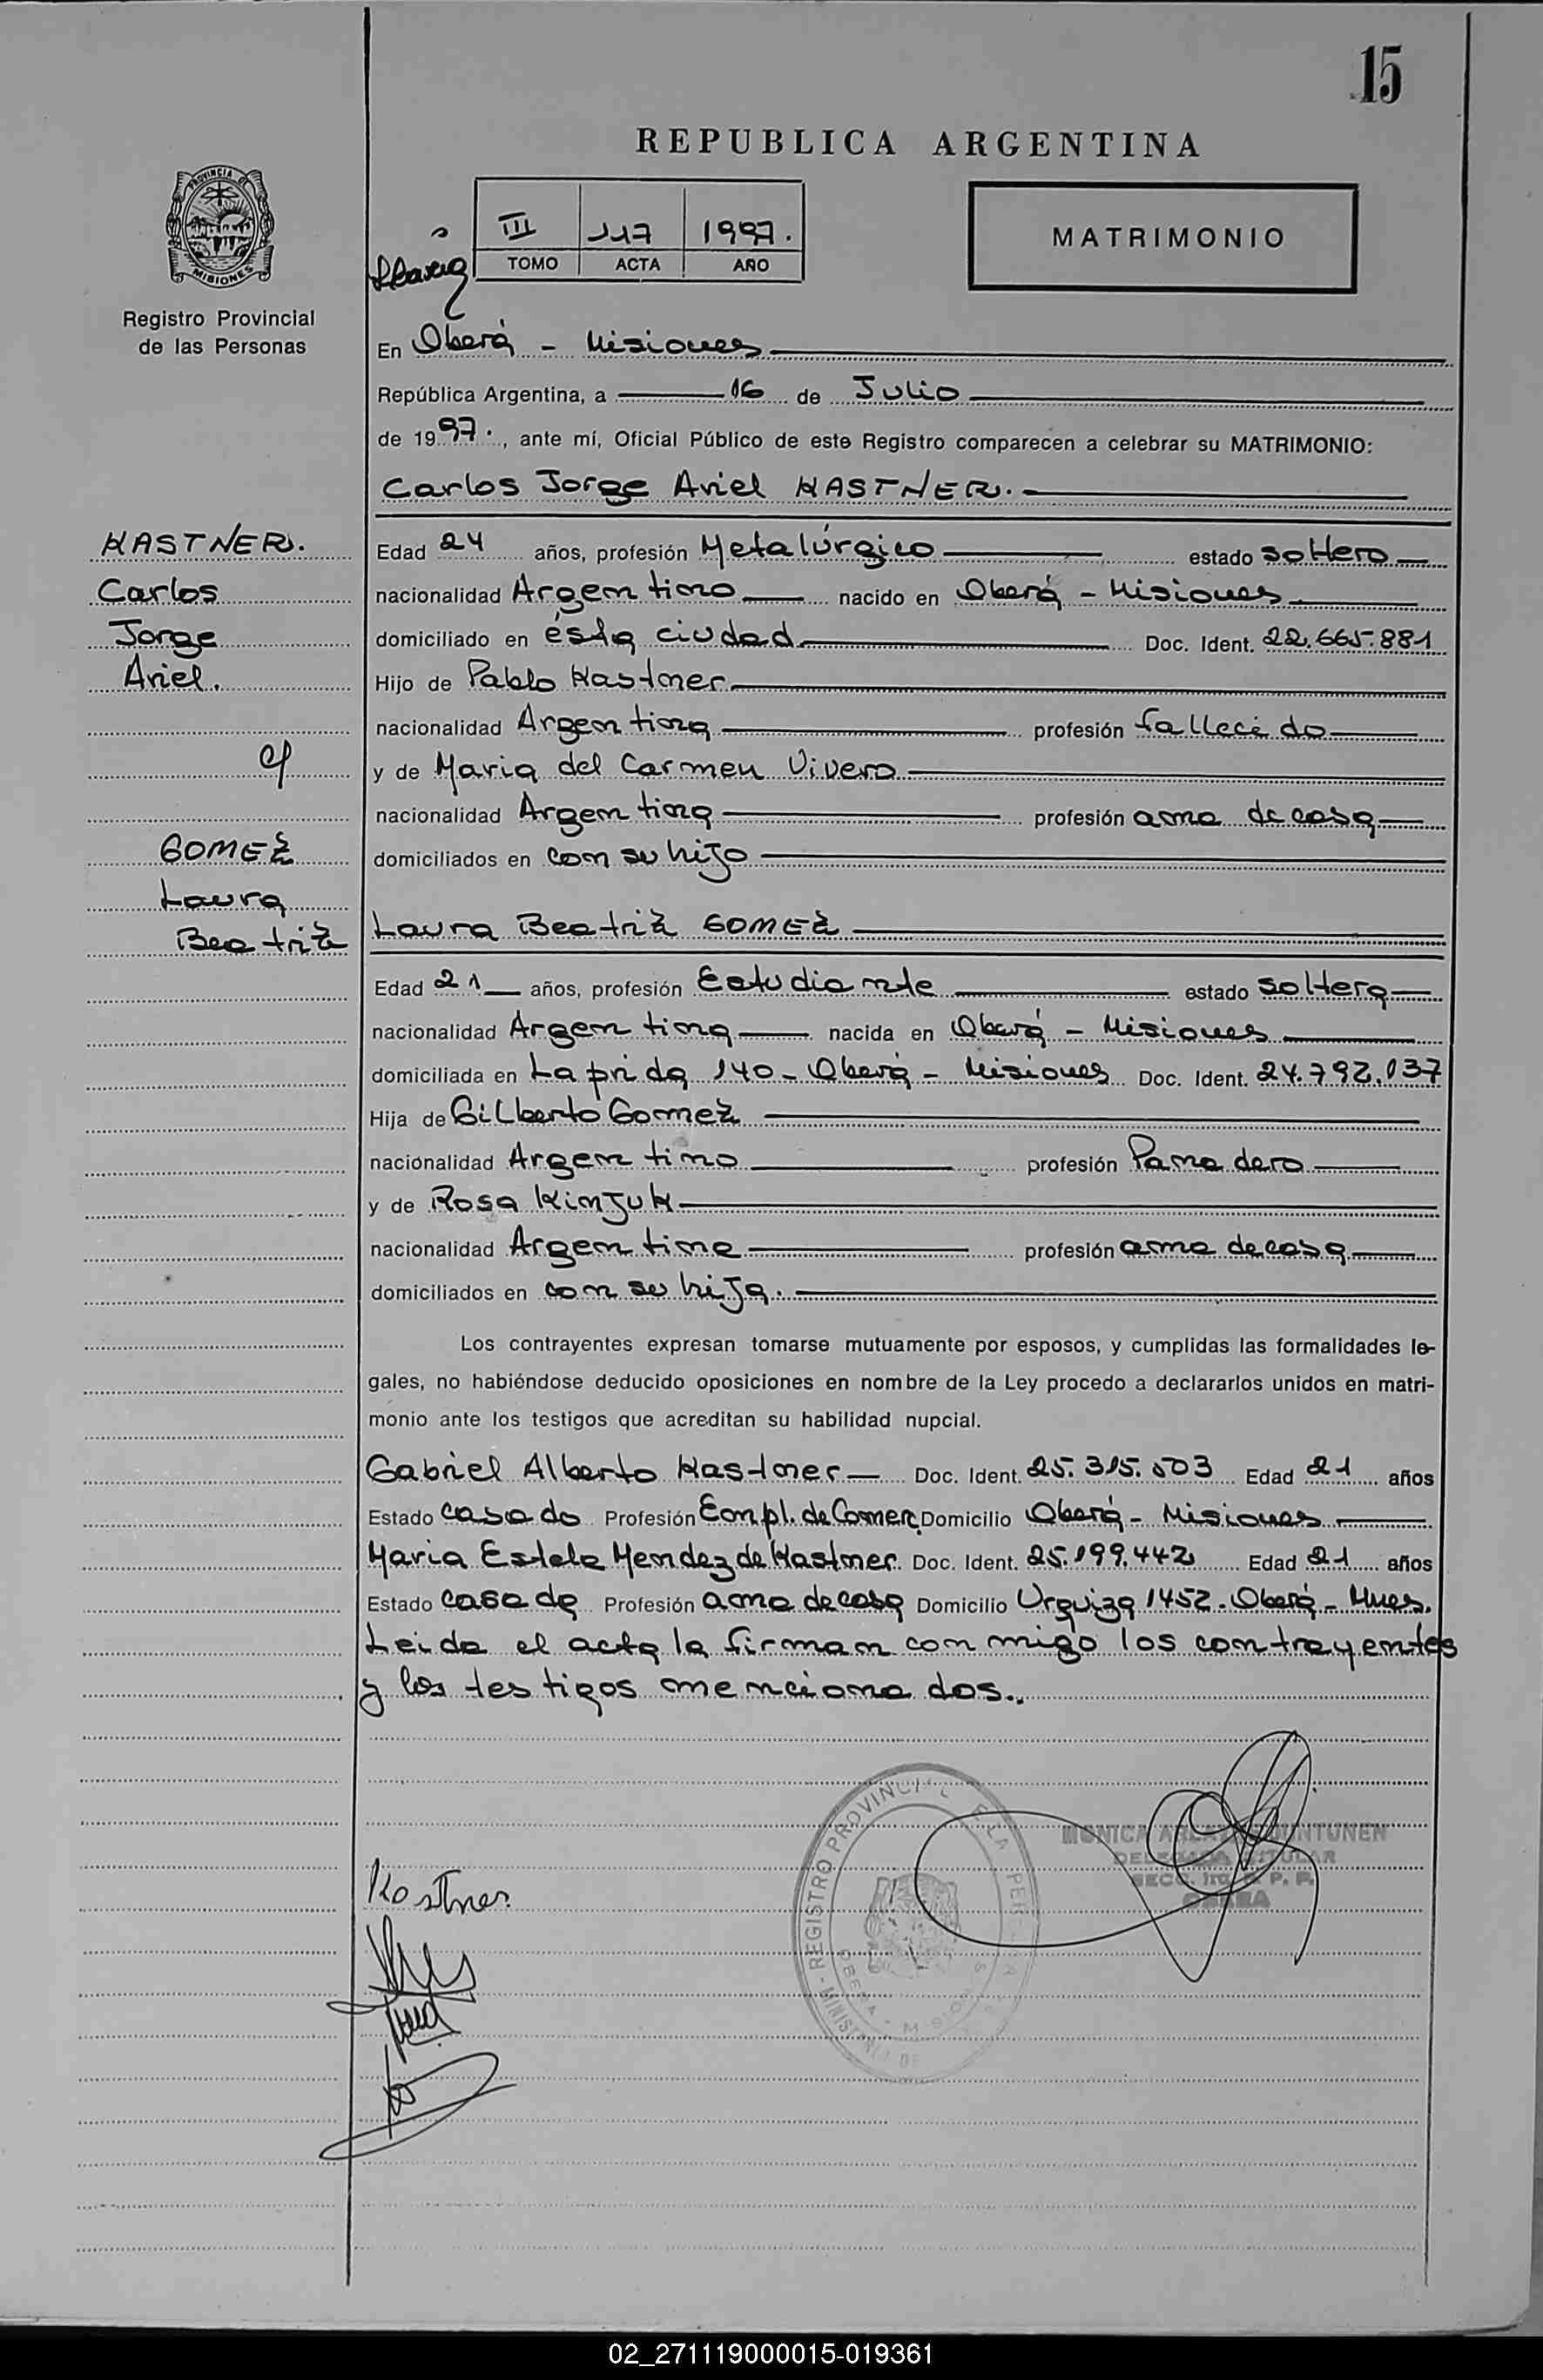 15
REPUBLICA ARGENTINA
PROVINCIA DE
MISIONES
Registro Provincial
de las Personas
III 117 1997.
TOMO ACTA AÑO
MATRIMONIO
En Oberá - Misiones
República Argentina, a 16 de Julio
de 1997., ante mí, Oficial Público de este Registro comparecen a celebrar su MATRIMONIO:
Carlos Jorge Ariel KASTNER.
KASTNER.
Carlos
Jorge
Ariel.
c/
GOMEZ
Laura
Beatriz
Edad 24 años, profesión Metalúrgico estado soltero
nacionalidad Argentino nacido en Oberá - Misiones
domiciliado en ésta ciudad Doc. Ident. 22.665.881
Hijo de Pablo Kastner
nacionalidad Argentina profesión fallecido
y de Maria del Carmen Vivero
nacionalidad Argentina profesión ama de casa
domiciliados en con su hijo
Laura Beatriz GOMEZ
Edad 21 años, profesión Estudiante estado soltera
nacionalidad Argentina nacida en Oberá - Misiones
domiciliada en Laprida 140 - Oberá - Misiones Doc. Ident. 24.792.037
Hija de Gilberto Gomez
nacionalidad Argentino profesión Panadero
y de Rosa Kinjuk
nacionalidad Argentina profesión ama de casa
domiciliados en con su hija.
Los contrayentes expresan tomarse mutuamente por esposos, y cumplidas las formalidades le-
gales, no habiéndose deducido oposiciones en nombre de la Ley procedo a declararlos unidos en matri-
monio ante los testigos que acreditan su habilidad nupcial.
Gabriel Alberto Kastner Doc. Ident. 25.315.503 Edad 21 años
Estado casado Profesión Empl. de Comerc Domicilio Oberá - Misiones
Maria Estela Mendez de Kastner Doc. Ident. 25.199.442 Edad 21 años
Estado casada Profesión ama de casa Domicilio Urquiza 1452. Oberá - Mnes.
Leida el acta la firman conmigo los contrayentes
y los testigos mencionados.
REGISTRO PROVINCIAL
OBERA - MISIONES
MONICA
DELEGADA TITULAR
OBERA
Kastner
02_271119000015-019361